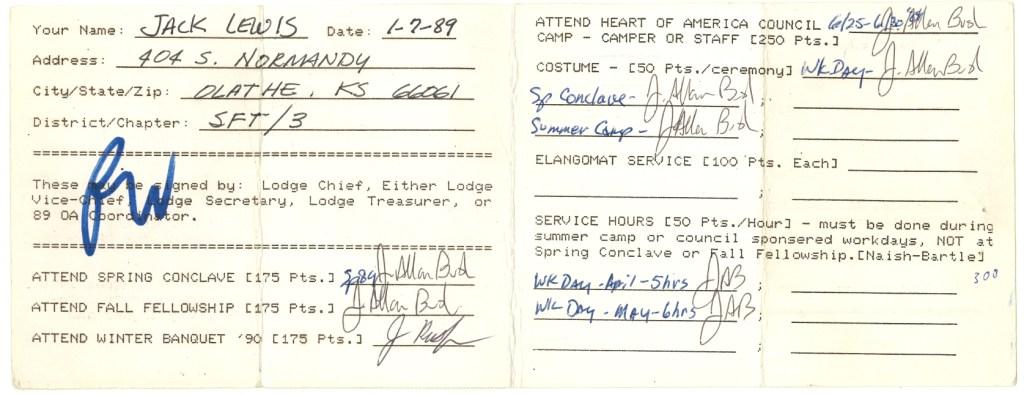 Your Name: JACK LEWIS Date: 1-7-89
Address: 404 S. NORMANDY
City/State/Zip: OLATHE, KS 66061
District/Chapter: SFT/3
These may be signed by: Lodge Chief, Either Lodge
Vice-Chief, Lodge Secretary, Lodge Treasurer, or
89 OA Coordinator.
ATTEND SPRING CONCLAVE [175 Pts.] Sp89 J. Allan Bud
ATTEND FALL FELLOWSHIP [175 Pts.] J. Allan Bud
ATTEND WINTER BANQUET '90 [175 Pts.] J
ATTEND HEART OF AMERICA COUNCIL 6/25-6/30/89 J. Allan Bud
CAMP - CAMPER OR STAFF [250 Pts.]
COSTUME - [50 Pts./ceremony] WK DAY- J. Allan Bud
Sp Conclave- J. Allan Bud ;
Summer Camp - J Allan Bud ;
ELANGOMAT SERVICE [100 Pts. Each]
;
SERVICE HOURS [50 Pts./Hour] - must be done during
summer camp or council sponsered workdays, NOT at
Spring Conclave or Fall Fellowship.[Naish-Bartle]
300
WK DAY - April - 5hrs JAB ;
WK DAY - MAY - 6hrs JAB ;
;